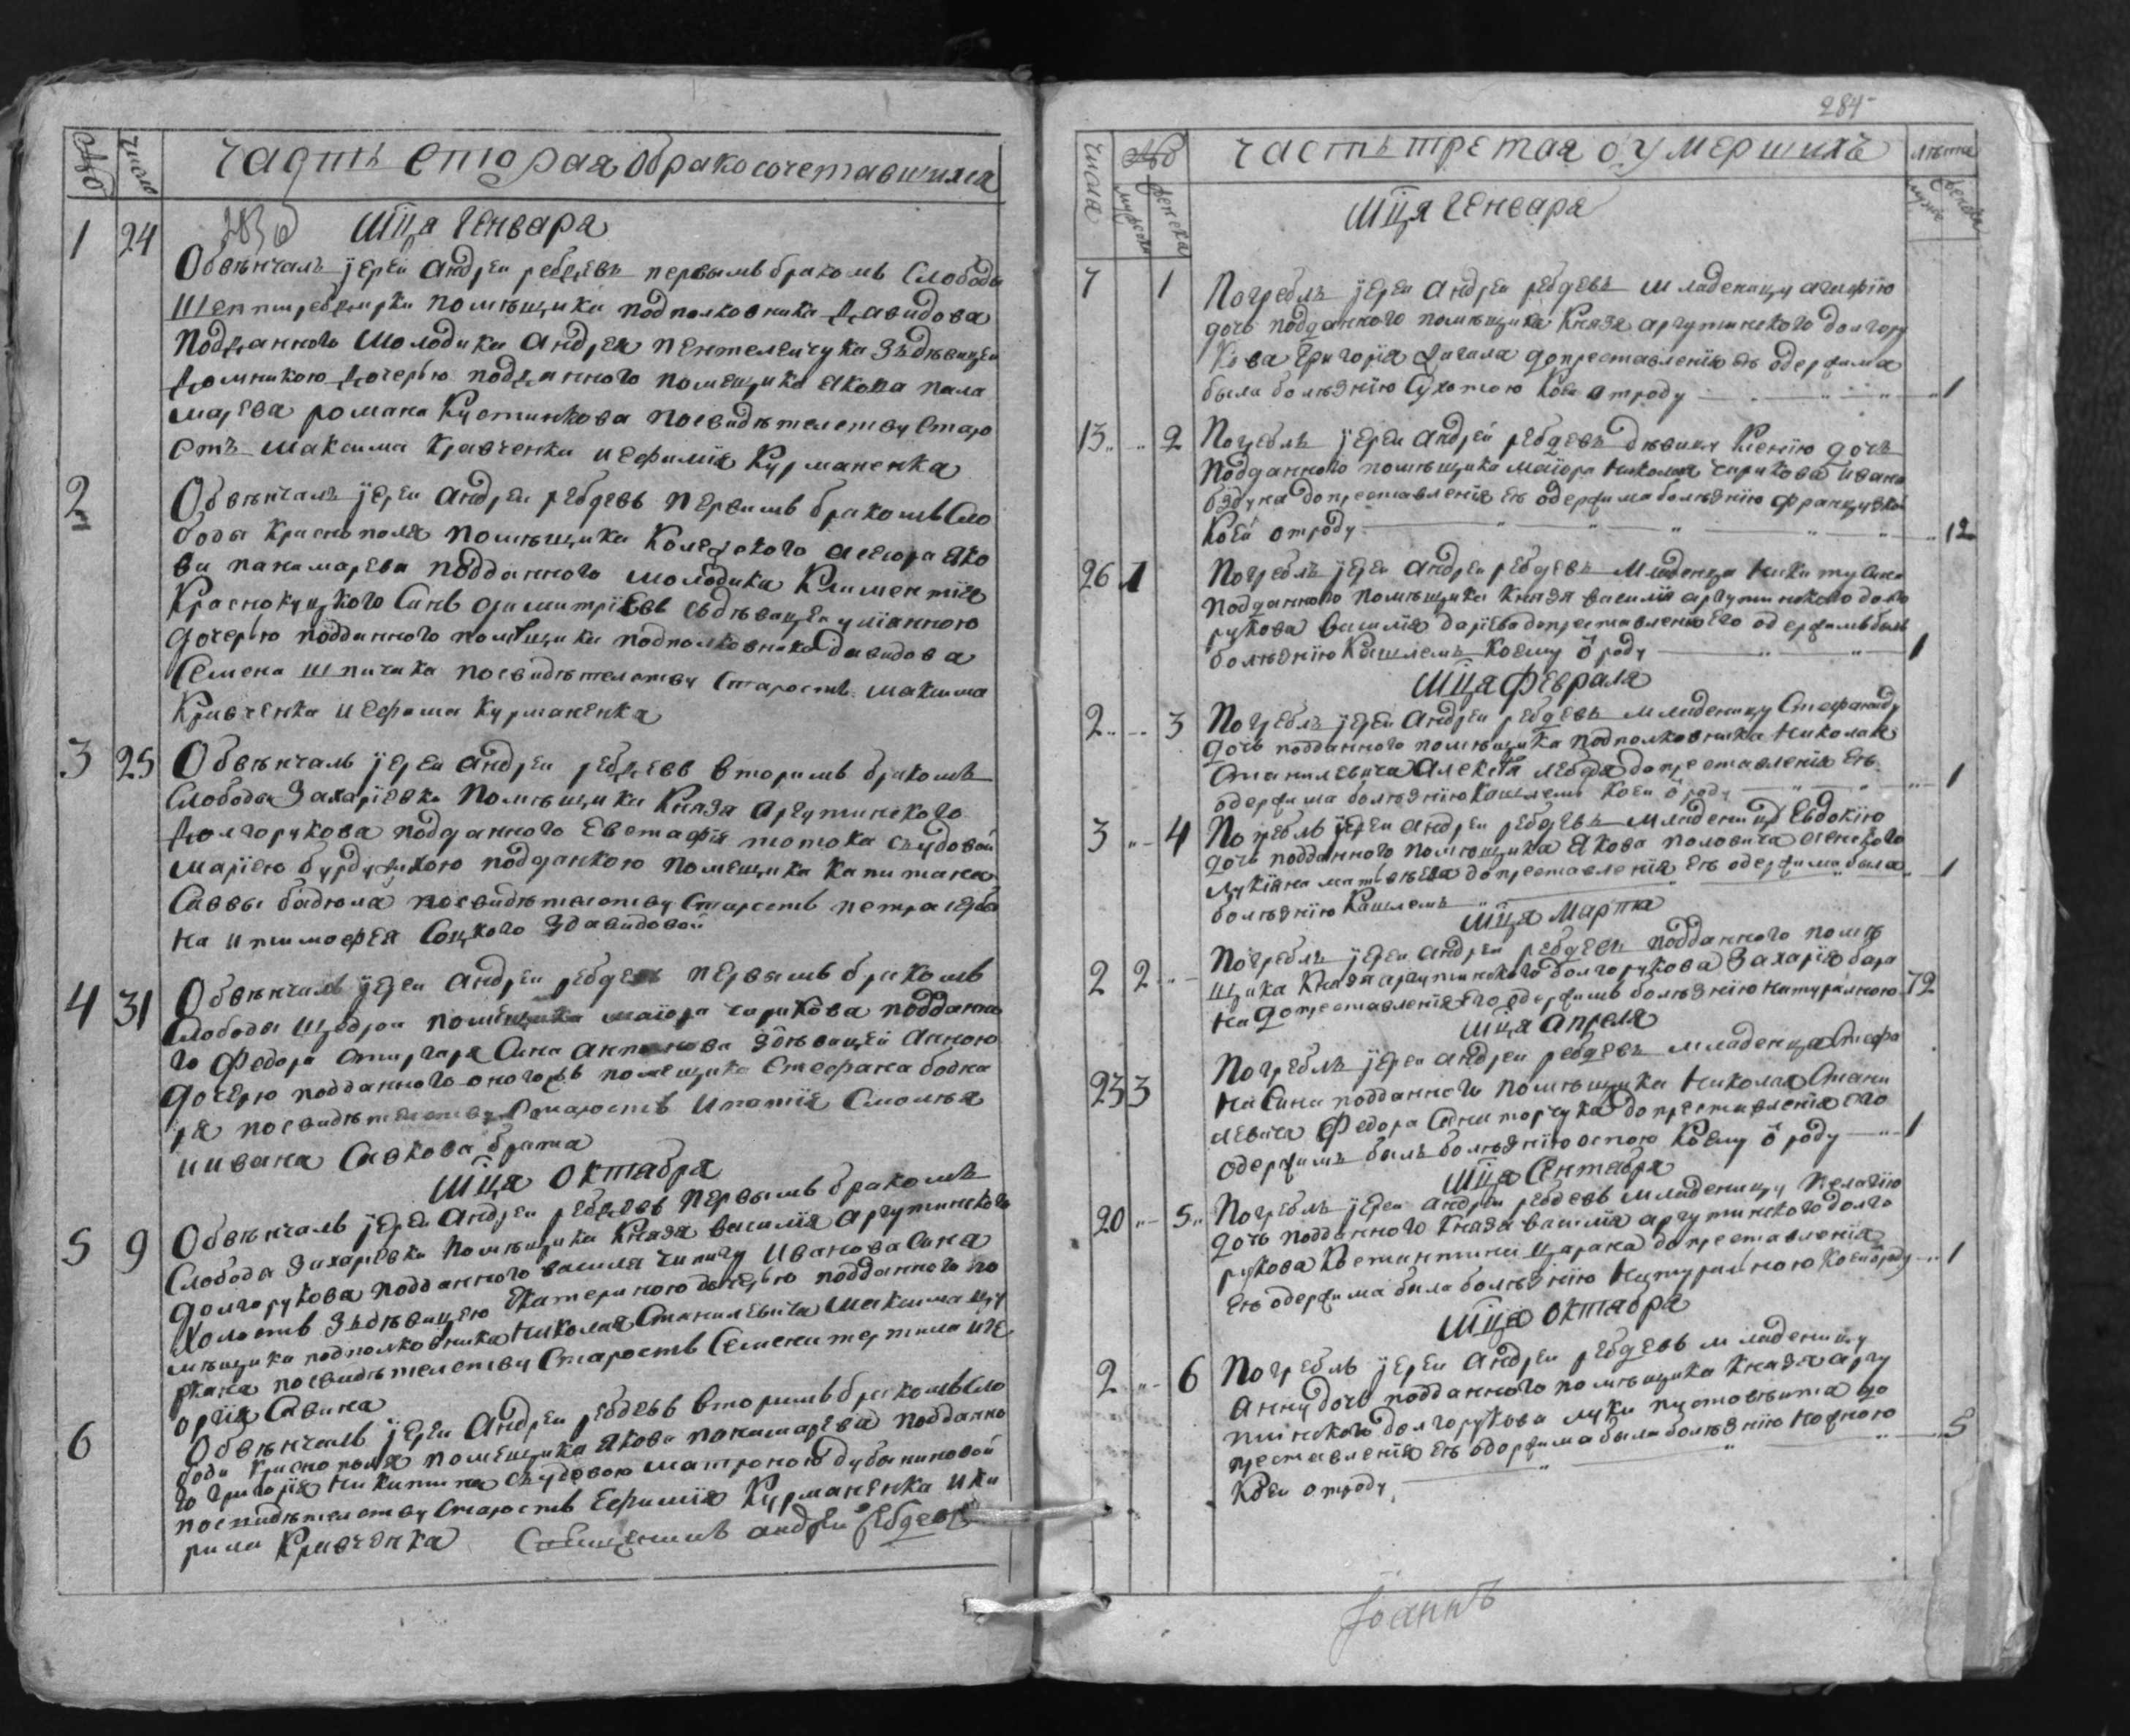 № число
Часть вторая обракосочетавшихся
Мца Генваря
1 24 Обвѣнчалъ іерей Андрей ребдевъ первымъ бракомъ Слободы
помѣщика подполковника Давидова
подданного молодика Андрея здѣвицею
Домникою дочерью подданного помещика Якова пала
марева романа посвидѣтелству Старо
стъ Максима Кравченка и Ефимія Курманенка
2 Обвѣнчалъ іерей Андрей ребдевъ первимъ бракомъ Сло
боды Краснополя помѣщика Колежского асесора Яко
ва панамарева подданного молодика Климентія
Краснокуцкого Синъ дмитріевъ здѣвицею уліянною
дочерью подданного помѣщика подполковника Давидова
Семена Шпичака посвидѣтелству Старостъ Максима
Кравченка и Ефима Курманенка
3 25 Обвѣнчалъ іерей Андрей ребдевъ вторимъ бракомъ
Слободы Захарѣевки помѣщика Князя Аргутинского
Долгорукова подданного Евстафія съудовой
маріею подданкою помещика Капитана
Саввы посвидѣтелству Старостъ петра
на и тимофея Соцкого Здавидовой
4 31 Обвѣнчалъ іерей Андрей ребдевъ первымъ бракомъ
Слободы помѣщика маіора Чирикова поддан
го Федора Сина здѣвицей Анною
дочерю подданного оногожъ помещика Стефана
ря посвидѣтелству Старостъ Ипатія
и ивана Савкова брата
Мца Октября
5 9 Обвѣнчалъ іерей Андрей ребдевъ первымъ бракомъ
Слобода Захаревки помѣщика Князя василия Аргутинского
долгорукова подданного василя Иванова Сина
Холостъ здѣвицею Екатериною дочерью подданного по
мѣщика подполковника Николая Станилевича Максима
посвидѣтелству Старостъ Семена и ге
оргія Савина
6 Обвѣнчалъ іерей Андрей ребдевъ вторимъ бракомъ Сло
боди Краснополя помещика Якова панамарева подданно
го григорія Никитина съудовою матроною
посвидѣтелству Старостъ Ефимія Курманенка и Ки
рила Кравченка Священникъ андрей Ребдевъ
284
числа № мужска женска
Часть третая оумершихъ
лѣта мужс женска
Мця Генваря
7 1 Погреблъ іерей Андрей ребдевъ младеницу
дочь подданного помѣщика Князя аргутинского долгору
кова Григорія допреставленія еъ одержима
была болѣзнію Сухотою коей отроду 1
13 2 Погреблъ іерей Андрей ребдевъ дѣвицу Ксенію дочь
подданного помѣщика маіора Николая чирикова ивана
допреставленія еъ одержима болѣзнію французкою
коей отроду 12
26 1 Погреблъ іерей Андрей ребдевъ младенца Никиту Сина
подданного помѣщика Князя василия аргутинского долго
рукова василія допреставленія его одержимъ былъ
болѣзнію Кашлемъ коему ѿ роду 1
Мця Февраля
2 3 Погреблъ іерей Андрей ребдевъ младеницу Стефаниду
дочь подданного помѣщика подполковника Николая
Станилевича Алексѣя допреставленія еъ
одержима болѣзнію кашлемъ коей ѿ роду 1
3 4 Погреблъ іерей Андрей ребдевъ младеницу Евдокію
дочь подданного помѣщика Якова
лукіяна допреставленія еъ одержима была 1
болѣзнію Кашлемъ
Мця Марта
2 2 Погреблъ іерей Андрей ребдевъ подданного помѣ
щика Князя аргутинского долгорукова Захарія бара
на допреставленія его одержимъ болѣзнію натуралною 72
Мця Апреля
23 3 Погреблъ іерей Андрей ребдевъ младенца Стефа
на Сина подданного помѣщика Николая Стани
левича Федора допреставленія его
одержимъ былъ болѣзнію оспою коему ѿ роду 1
Мця Сентября
20 5 Погреблъ іерей Андрей ребдевъ младеницу Пелагію
дочь подданного Князя василія аргутинского долго
рукова допреставленія
еъ одержима била болѣзнію натуралною коей ѿроду 1
Мця Октября
2 6 Погреблъ іерей Андрей ребдевъ младеницу
Анну дочь подданного помѣщика Князя аргу
тинского долгорукова луки до
преставленія еъ одержима была болѣзнію 5
Коей отроду
Іоаннъ